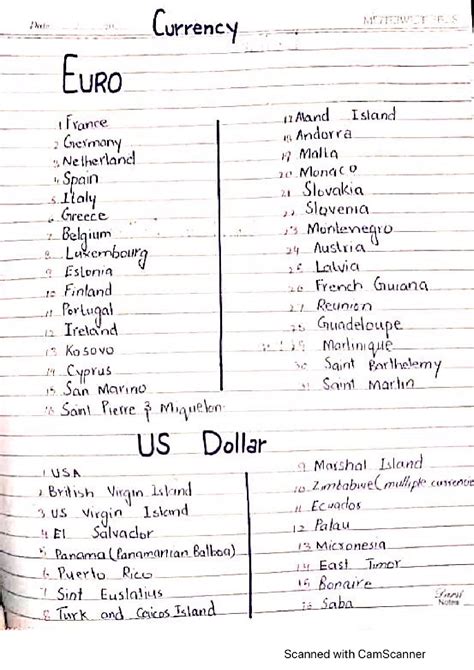 Date
Currency
EURO
1 France
2 Germany
3 Netherland
4 Spain
5 Italy
6 Greece
7 Belgium
8 Luxembourg
9 Estonia
10 Finland
11 Portugal
12 Ireland
13 Kosovo
14 Cyprus
15 San Marino
16 Saint Pierre & Miquelon
17 Aland Island
18 Andorra
19 Malta
20 Monaco
21 Slovakia
22 Slovenia
23 Montenegro
24 Austria
25 Latvia
26 French Guiana
27 Reunion
28 Guadeloupe
29 Martinique
30 Saint Barthelemy
31 Saint Martin
US Dollar
1 USA
2 British Virgin Island
3 US Virgin Island
4 El Salvador
5 Panama (Panamanian Balboa)
6 Puerto Rico
7 Sint Eustatius
8 Turk and Caicos Island
9 Marshal Island
10 Zimbabwe (multiple currencie
11 Ecuador
12 Palau
13 Micronesia
14 East Timor
15 Bonaire
16 Saba
Notes
Scanned with CamScanner